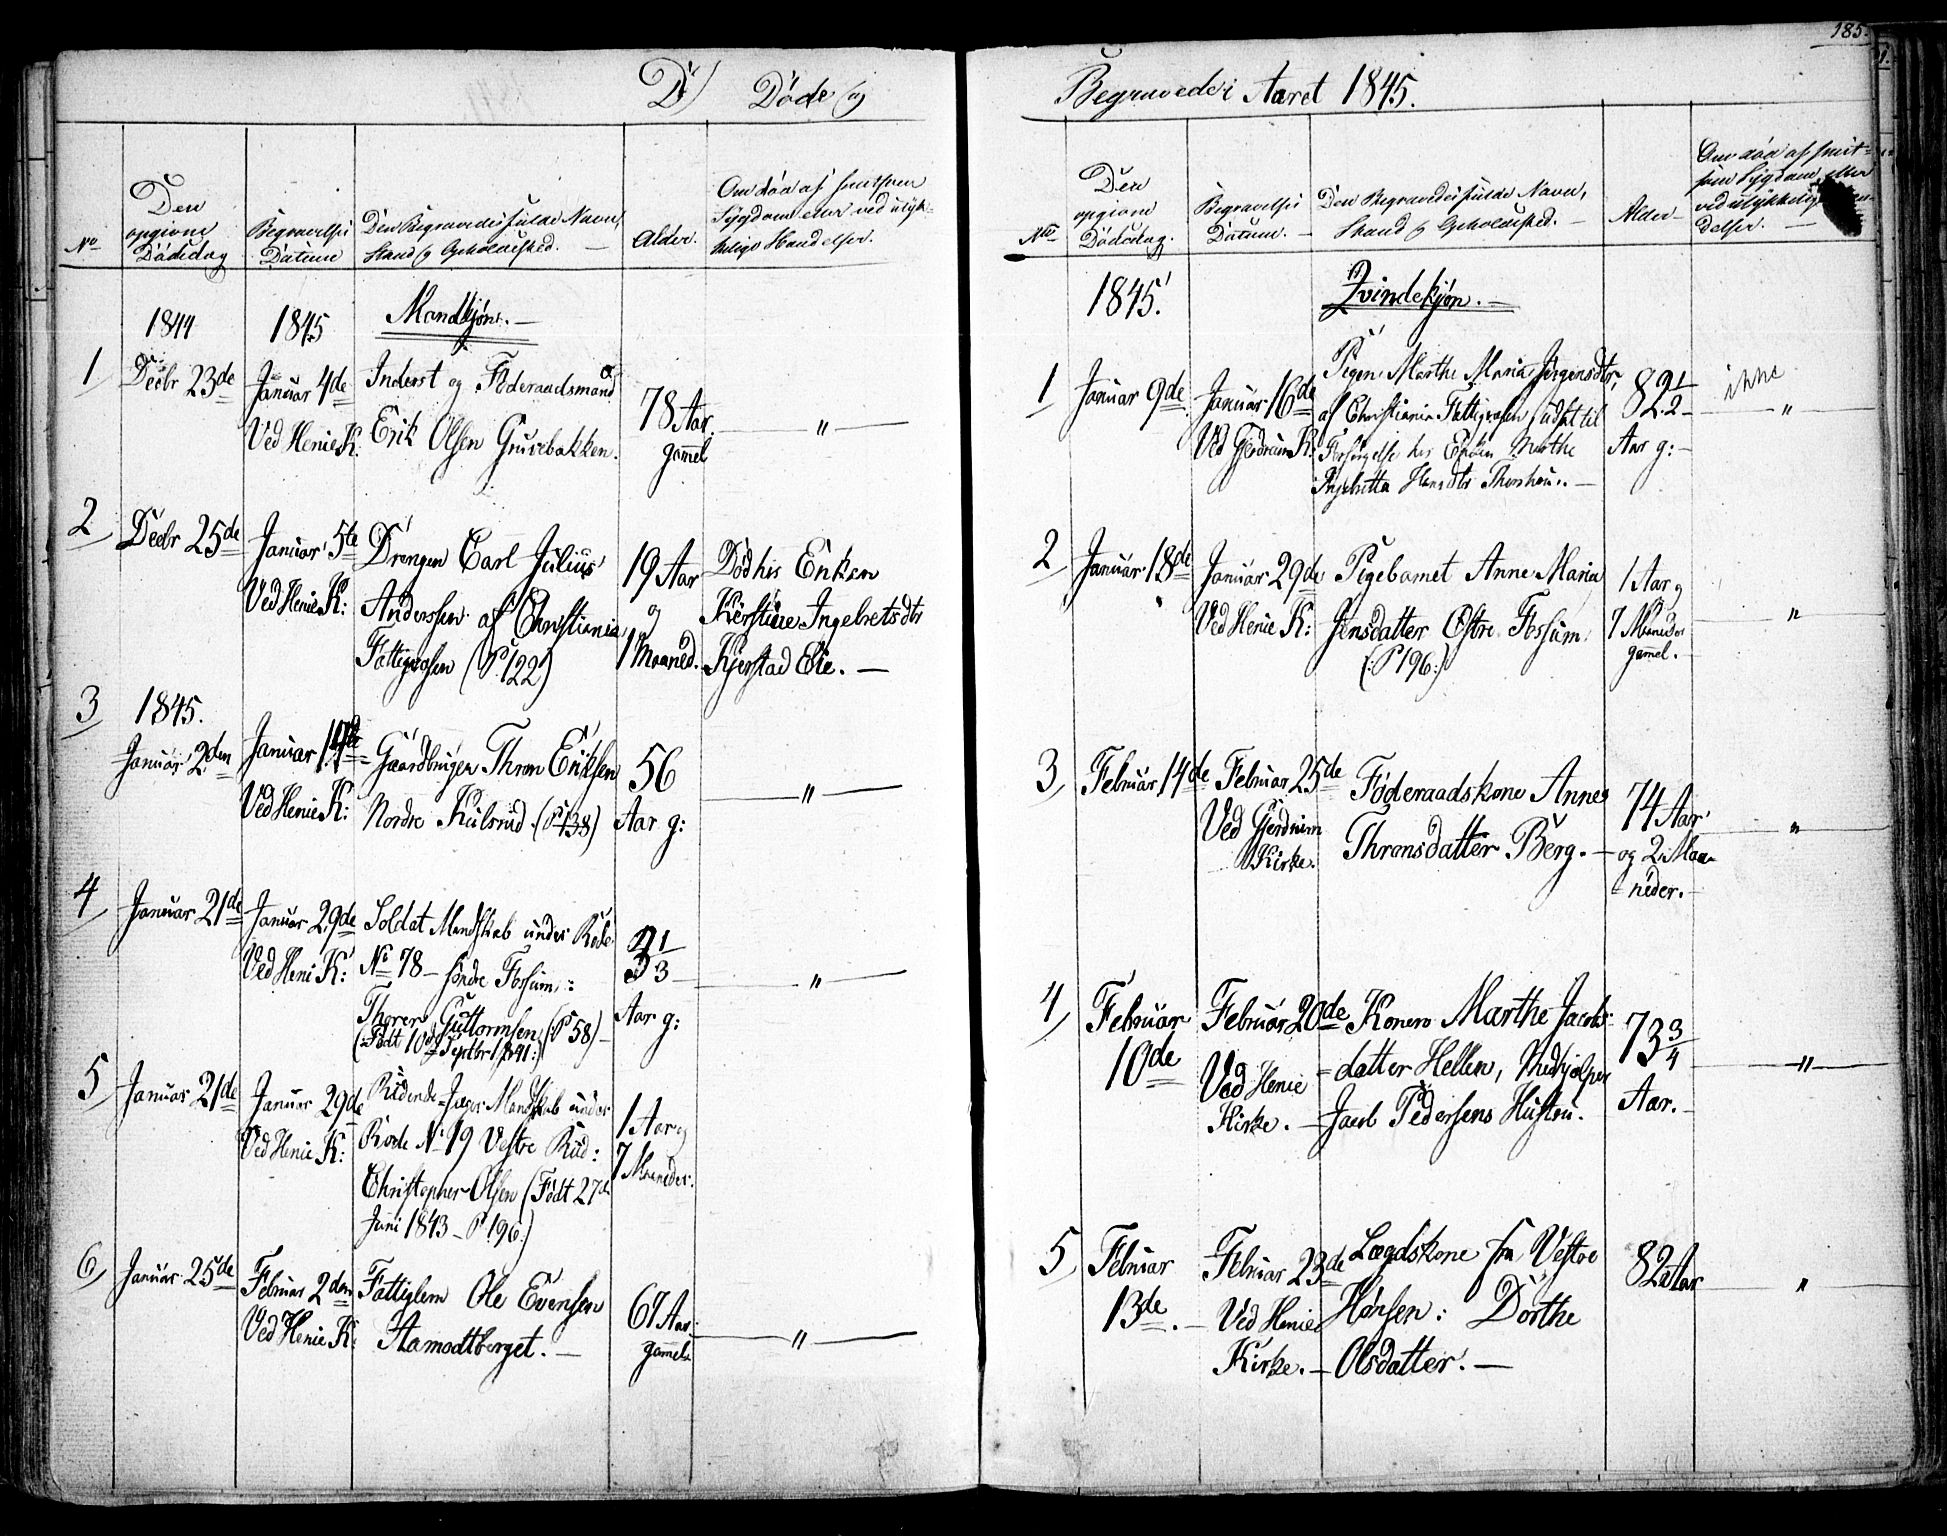 185.
D) Døde og
Begravede i Aaret 1845.
No
Den
opgivne
Dødsdag
Begravelses
Datum
Den Begravedes fulde Navn,
Stand og Opholdssted.
Alder.
Om død af smitsom
Sygdom eller ved ulyk-
kelige Hændelser.
1844
1845
Mandkjøn.
1
Decbr 23de
Januar 4de
Ved Henie K:
Inderst og Føderaadsmand
Erik Olsen Gruvebakken.
78 Aar
gamel
"
2
Decbr 25de
Januar 5te
Ved Henie K:
Drengen Carl Julius
Anderssen af Christiania
Fattigvæsen (P. 122)
19 Aar
og
1 Maaned.
Død hos Enken
Kerstine Ingebretsdtr
Kjerstad Eie.
3
1845.
Januar 2den
Januar
Ved Henie K:
Gaardbruger Thron Eriksen
Nordre Kulsrud (P 138)
56
Aar g:
"
4
Januar 21de
Januar 29de
Ved Heni K:
Soldat Mandskab under Rode
No 78 – søndre Fossum:
Thorer Guttormsen (P 58)
(Født 10de Septbr 1841:)
3 1/3
Aar g:
"
5
Januar 21de
Januar 29de
Ved Henie K:
Ridende Jæger Mandskab under
Rode No 19 Vestre Rud:
Christopher Olsen (Født 27de
Juni 1843 – P. 196.)
1 Aar og
7 Maaneder.
6
Januar 25de
Februar 2den
Ved Henie K:
Fattiglem Ole Evensen
Aamodtberget.
67 Aar
gamel.
"
Nto
Den
opgivne
Dødsdag.
Begravelses
Datum.
Den Begravedes fulde Navn,
Stand og Opholdssted.
Alder
Om død af smit-
som Sygdom eller
ved ulykkelige
delser.
1845.
Qvindekjøn.
1
Januar 9de
Januar 16de
Ved Gjerdrum K:
Pigen Marthe Maria Jørgensdtr,
af Christiania Fattigvæsen udsat til
Forsørgelse hos Enken Marthe
Ingebretta Hansdtr
82 1/2
Aar g:
ikke
"
2
Januar 18de
Januar 29de
Ved Henie K:
Pigebarnet Anne Maria
Jensdatter Østre Fossum.
(: P 196:)
1 Aar og
7 Maaneder
gamel.
"
3
Februar 14de
Februar 25de
Ved Gjerdrum
Kirke.
Føderaadskone Anne
Thronsdatter Berg.
74 Aar
og 2 Maa-
neder.
"
4
Februar
10de
Februar 20de
Ved Henie
Kirke.
Konen Marthe Jacobs-
datter Hellen, Medhjelper
Jacob Pedersens Hustru.
73 3/4
Aar.
"
5
Februar
13de
Februar 23de
Ved Henie
Kirke.
Lægdskone fra Vestre
Hønsen: Dorthe
Olsdatter.
82 Aar
"